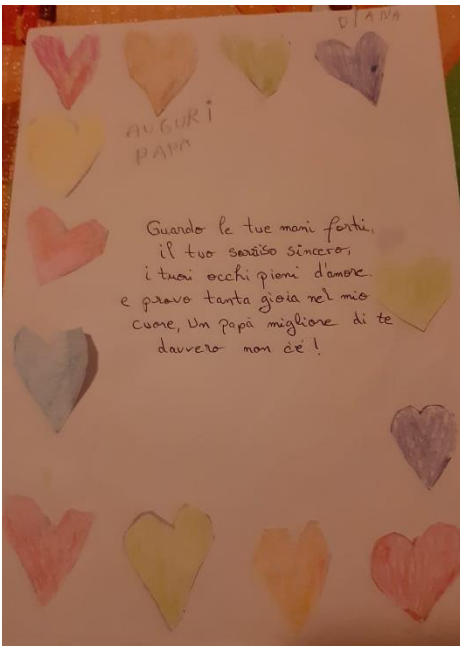 DIANA
AUGURI
PAPA
Guardo le tue mani forti,
il tuo sorriso sincero,
i tuoi occhi pieni d'amore.
e provo tanta gioia nel mio
cuore, Un papà migliore di te
davvero non c'è!